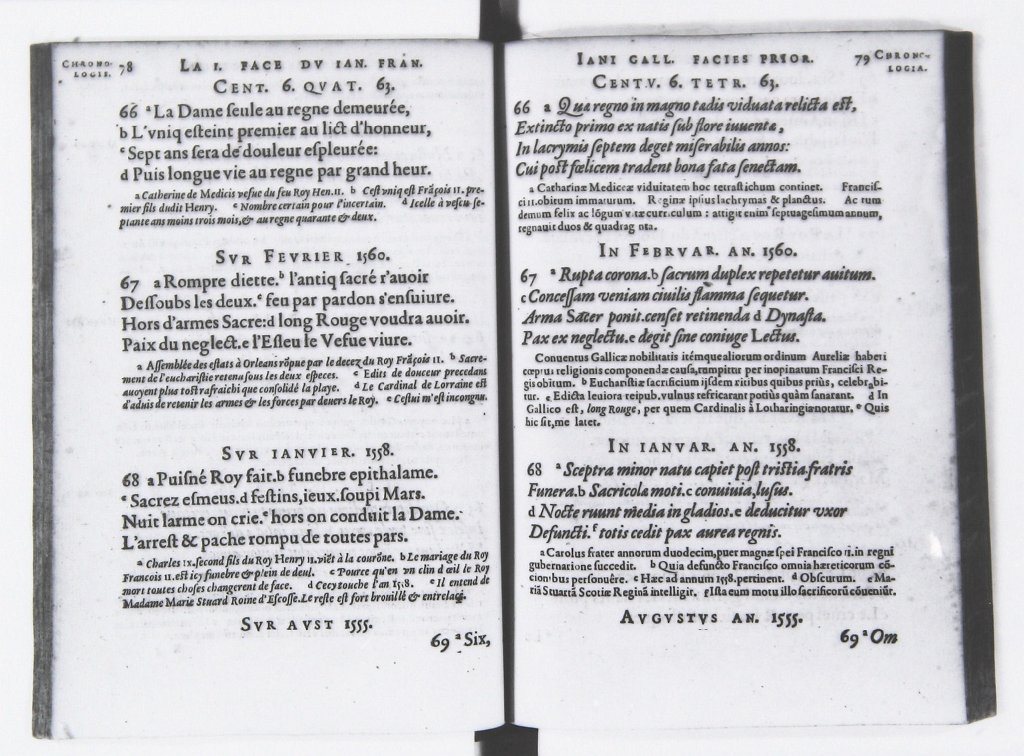 CHRONO-
LOGIE. 78 LA I. FACE DV IAN. FRAN.
CENT. 6. QVAT. 63.
66 ª La Dame ſeule au regne demeurée,
b L'vniq eſteint premier au lict d'honneur,
ᶜ Sept ans ſera de douleur eſpleurée:
d Puis longue vie au regne par grand heur.
a Catherine de Medicis vefue du feu Roy Hen. II. b Ceſt vniq eſt Frãçois II. pre-
mier fils dudit Henry. c Nombre certain pour l'incertain. d Icelle à veſcu ſe-
ptante ans moins trois mois, & au regne quarante & deux.
SVR FEVRIER 1560.
67 a Rompre diette. b l'antiq ſacré r'auoir
Deſſoubs les deux. ᶜ feu par pardon s'enſuiure.
Hors d'armes Sacre: d long Rouge voudra auoir.
Paix du neglect. e l'Eſleu le Vefue viure.
a Aſſemblée des eſtats à Orleans rõpue par le decez du Roy Frãçois II. b Sacre-
ment de l'euchariſtie retenu ſous les deux eſpeces. c Edits de douceur precedans
auoyent plus toſt rafraichi que conſolidé la playe. d Le Cardinal de Lorraine eſt
d'aduis de retenir les armes & les forces par deuers le Roy. e Ceſtui m'eſt incongnu.
SVR IANVIER. 1558.
68 a Puiſné Roy fait. b funebre epithalame.
ᶜ Sacrez eſmeus. d feſtins, ieux. ſoupi Mars.
Nuit larme on crie. ᵉ hors on conduit la Dame.
L'arreſt & pache rompu de toutes pars.
a Charles IX. ſecond fils du Roy Henry II. viẽt à la courõne. b Le mariage du Roy
Francois II. eſt icy funebre & plein de deul. c Pource qu'en vn clin d'œil le Roy
mort toutes choſes changerent de face. d Cecy touche l'an 1558. e Il entend de
Madame Marie Stuard Roine d'Eſcoſſe. Le reſte eſt fort brouillé & entrelacé.
SVR AVST 1555.
69 ª Six,
IANI GALL. FACIES PRIOR. 79 CHRONO-
LOGIA.
CENTV. 6. TETR. 63.
66 a Qua regno in magno tædis viduata relicta eſt,
Extincto primo ex natis ſub flore iuuentæ,
In lacrymis ſeptem deget miſerabilis annos:
Cui poſt fœlicem tradent bona fata ſenectam.
a Catharinæ Mediceæ viduitatem hoc tetraſtichum continet. Franciſ-
ci II. obitum immaturum. Reginæ ipſius lachrymas & planctus. Ac tum
demum felix ac lõgum vitæ curriculum: attigit enim ſeptuageſimum annum,
regnauit duos & quadraginta.
IN FEBRVAR. AN. 1560.
67 ª Rupta corona. b ſacrum duplex repetetur auitum.
c Conceſſam veniam ciuilis flamma ſequetur.
Arma Sacer ponit. cenſet retinenda d Dynaſta.
Pax ex neglectu. e degit ſine coniuge Lectus.
Conuentus Gallicæ nobilitatis itémque aliorum ordinum Aureliæ haberi
cœptus religionis componendæ cauſa, rumpitur per inopinatum Franciſci Re-
gis obitum. b Euchariſtiæ ſacrificium iiſdem ritibus quibus priùs, celebrabi-
tur. c Edicta leuiora reipub. vulnus refricarant potiùs quàm ſanarant. d In
Gallico eſt, long Rouge, per quem Cardinalis à Lotharingia notatur. e Quis
hic ſit, me latet.
IN IANVAR. AN. 1558.
68 ª Sceptra minor natu capiet poſt triſtia fratris
Funera. b Sacricolæ moti. c conuiuia, luſus.
d Nocte ruunt media in gladios. e deducitur vxor
Defuncti. ᶠ totis cedit pax aurea regnis.
a Carolus frater annorum duodecim, puer magnæ ſpei Franciſco II. in regni
gubernatione ſuccedit. b Quia defuncto Franciſco omnia hæreticorum cõ-
cionibus perſonuêre. c Hæc ad annum 1558. pertinent. d Obſcurum. e Ma-
riã Stuartã Scotiæ Reginã intelligit. f Iſta eum motu illo ſacrificorũ cõueniũt.
AVGVSTVS AN. 1555.
69 ª Om